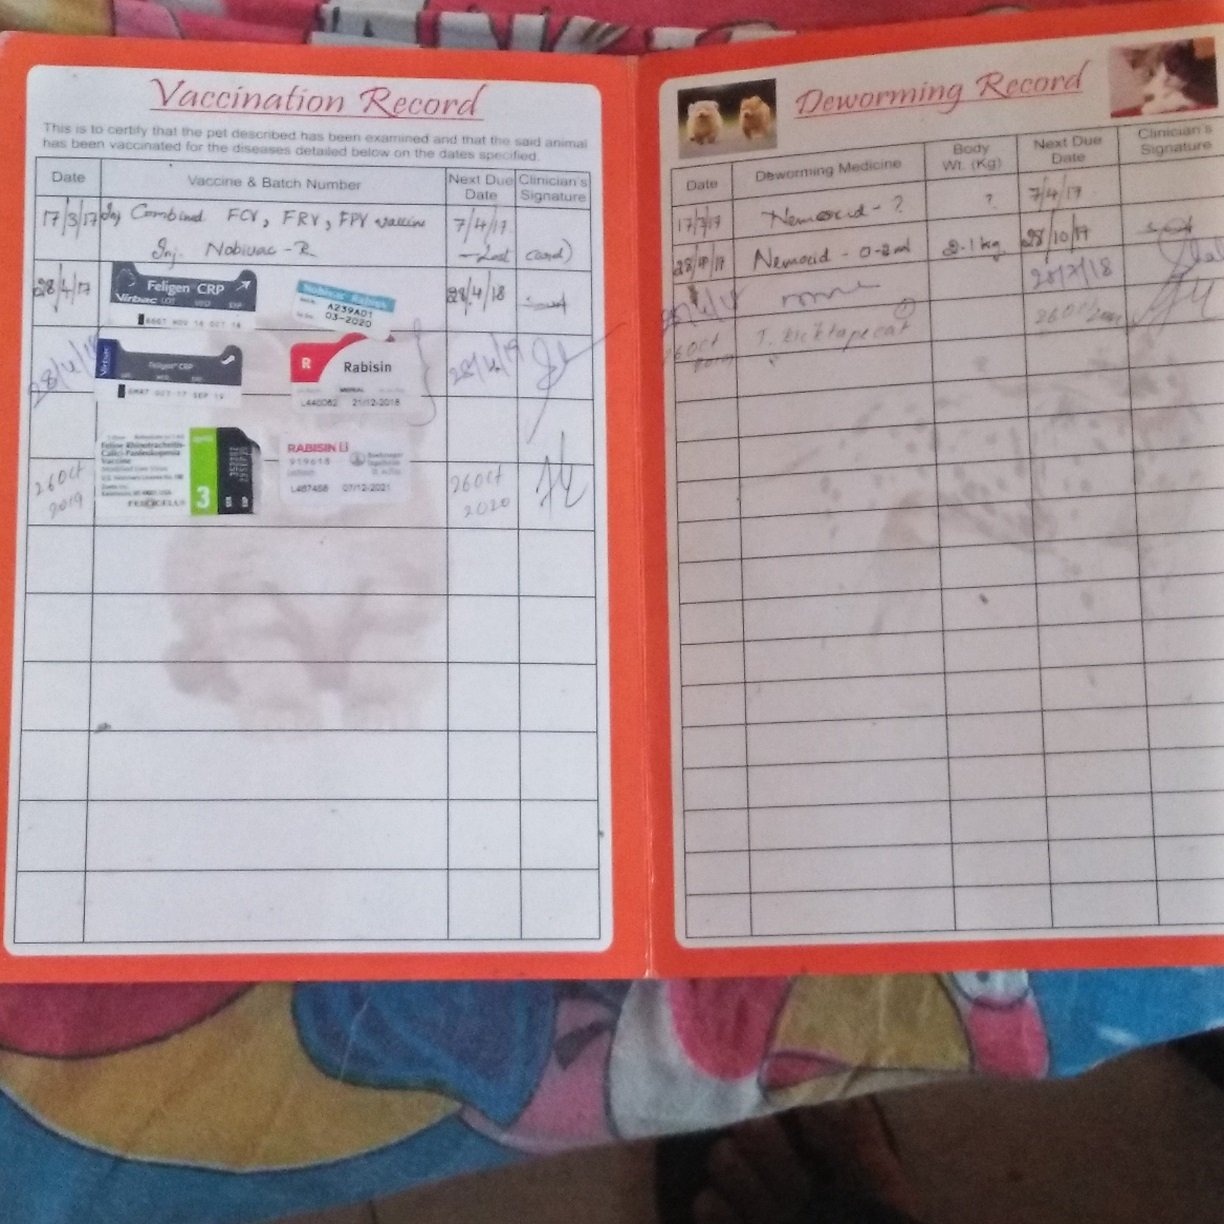 Vaccination Record
This is to certify that the pet described has been examined and that the said animal
has been vaccinated for the diseases detailed below on the dates specified.
Date Vaccine & Batch Number Next Due Date Clinician's Signature
17/3/17 Inj Combined FCV, FRV, FPV vaccine 7/4/17
Inj. Nobivac - R - Lost card)
28/4/17 Feligen CRP 28/4/18
Virbac LOT EXP
Nobivac Rabies
A239A01
03-2020
28/4/18 Virbac Feligen CRP 28/4/19
R Rabisin
L440062 21/12/2018
26 Oct 2019 Feline Rhinotracheitis-
Calici-Panleukopenia
Vaccine
Modified Live Virus
3
RABISIN
919618
L467468 07/12/2021
26 Oct 2020
Deworming Record
Date Deworming Medicine Body Wt. (Kg) Next Due Date Clinician's Signature
17/3/17 Nemocid - ? ? 7/4/17
28/4/17 Nemocid - 0-2ml 2.1 kg 28/10/17
28/7/18
26 Oct 2019 T. kiktapecat 26 Oct